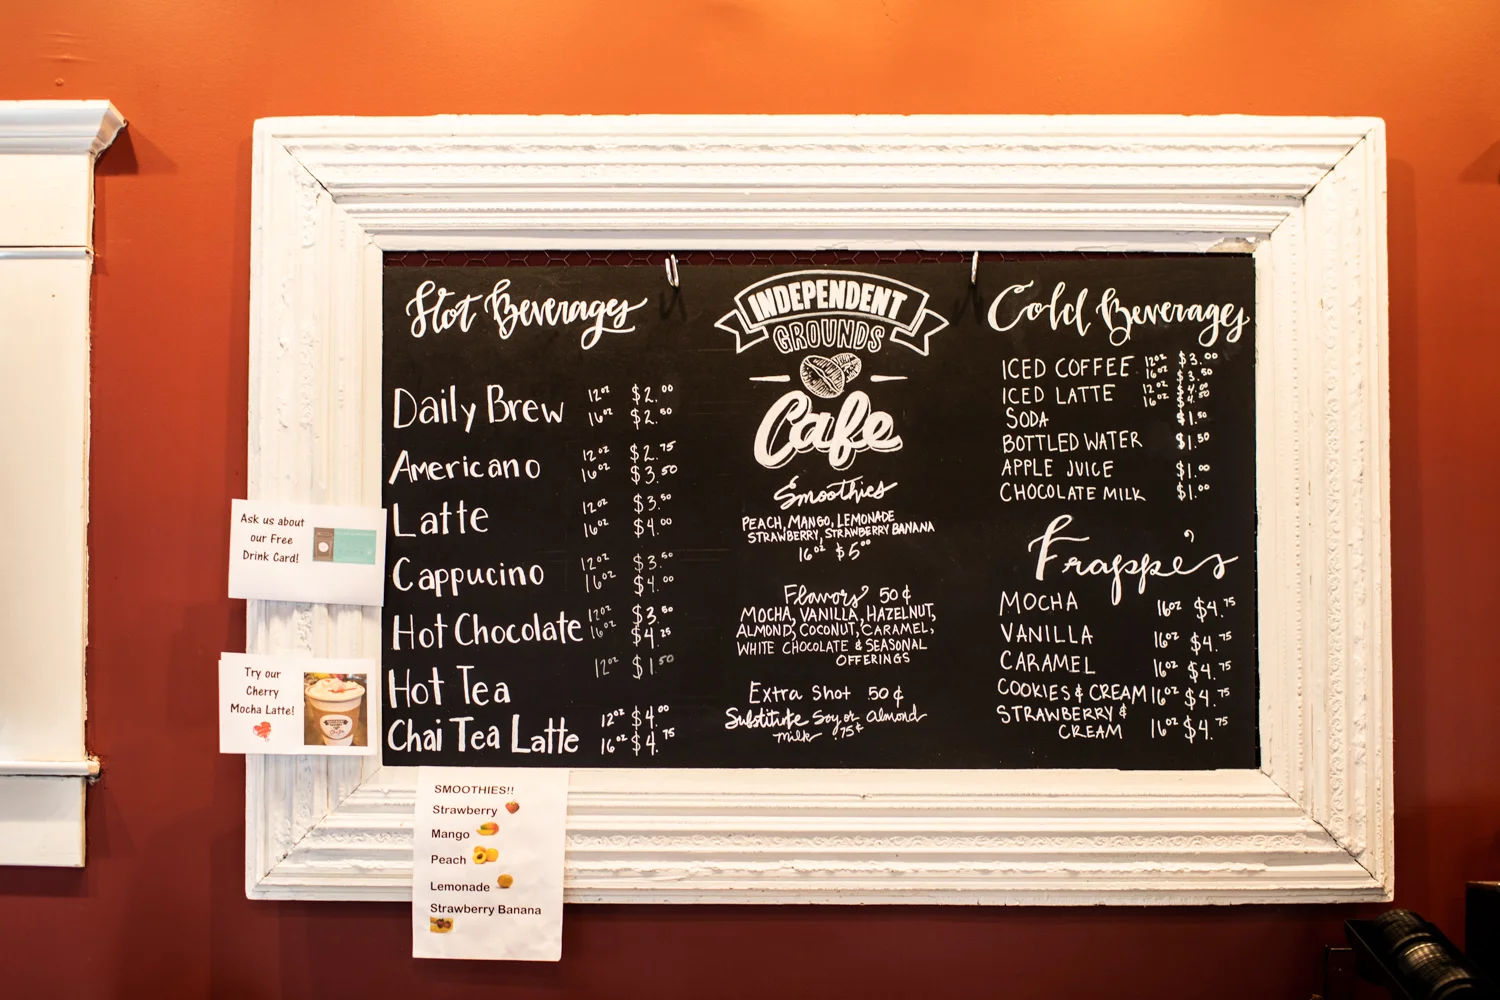 Hot Beverages
Daily Brew 12oz $2.00
16oz $2.50
Americano 12oz $2.75
16oz $3.50
Latte 12oz $3.50
16oz $4.00
Cappucino 12oz $3.50
16oz $4.00
Hot Chocolate 12oz $3.50
16oz $4.25
Hot Tea 12oz $1.50
Chai Tea Latte 12oz $4.00
16oz $4.75
INDEPENDENT
GROUNDS
Cafe
Smoothies
PEACH, MANGO, LEMONADE
STRAWBERRY, STRAWBERRY BANANA
16oz $5.00
Flavors 50¢
MOCHA, VANILLA, HAZELNUT,
ALMOND, COCONUT, CARAMEL,
WHITE CHOCOLATE & SEASONAL
OFFERINGS
Extra Shot 50¢
Substitute Soy or Almond
milk .75¢
Cold Beverages
ICED COFFEE 12oz $3.00
16oz $3.50
ICED LATTE 12oz $4.00
16oz $4.50
SODA $1.50
BOTTLED WATER $1.50
APPLE JUICE $1.00
CHOCOLATE MILK $1.00
Frappe's
MOCHA 16oz $4.75
VANILLA 16oz $4.75
CARAMEL 16oz $4.75
COOKIES & CREAM 16oz $4.75
STRAWBERRY &
CREAM 16oz $4.75
Ask us about
our Free
Drink Card!
Try our
Cherry
Mocha Latte!
SMOOTHIES!!
Strawberry
Mango
Peach
Lemonade
Strawberry Banana